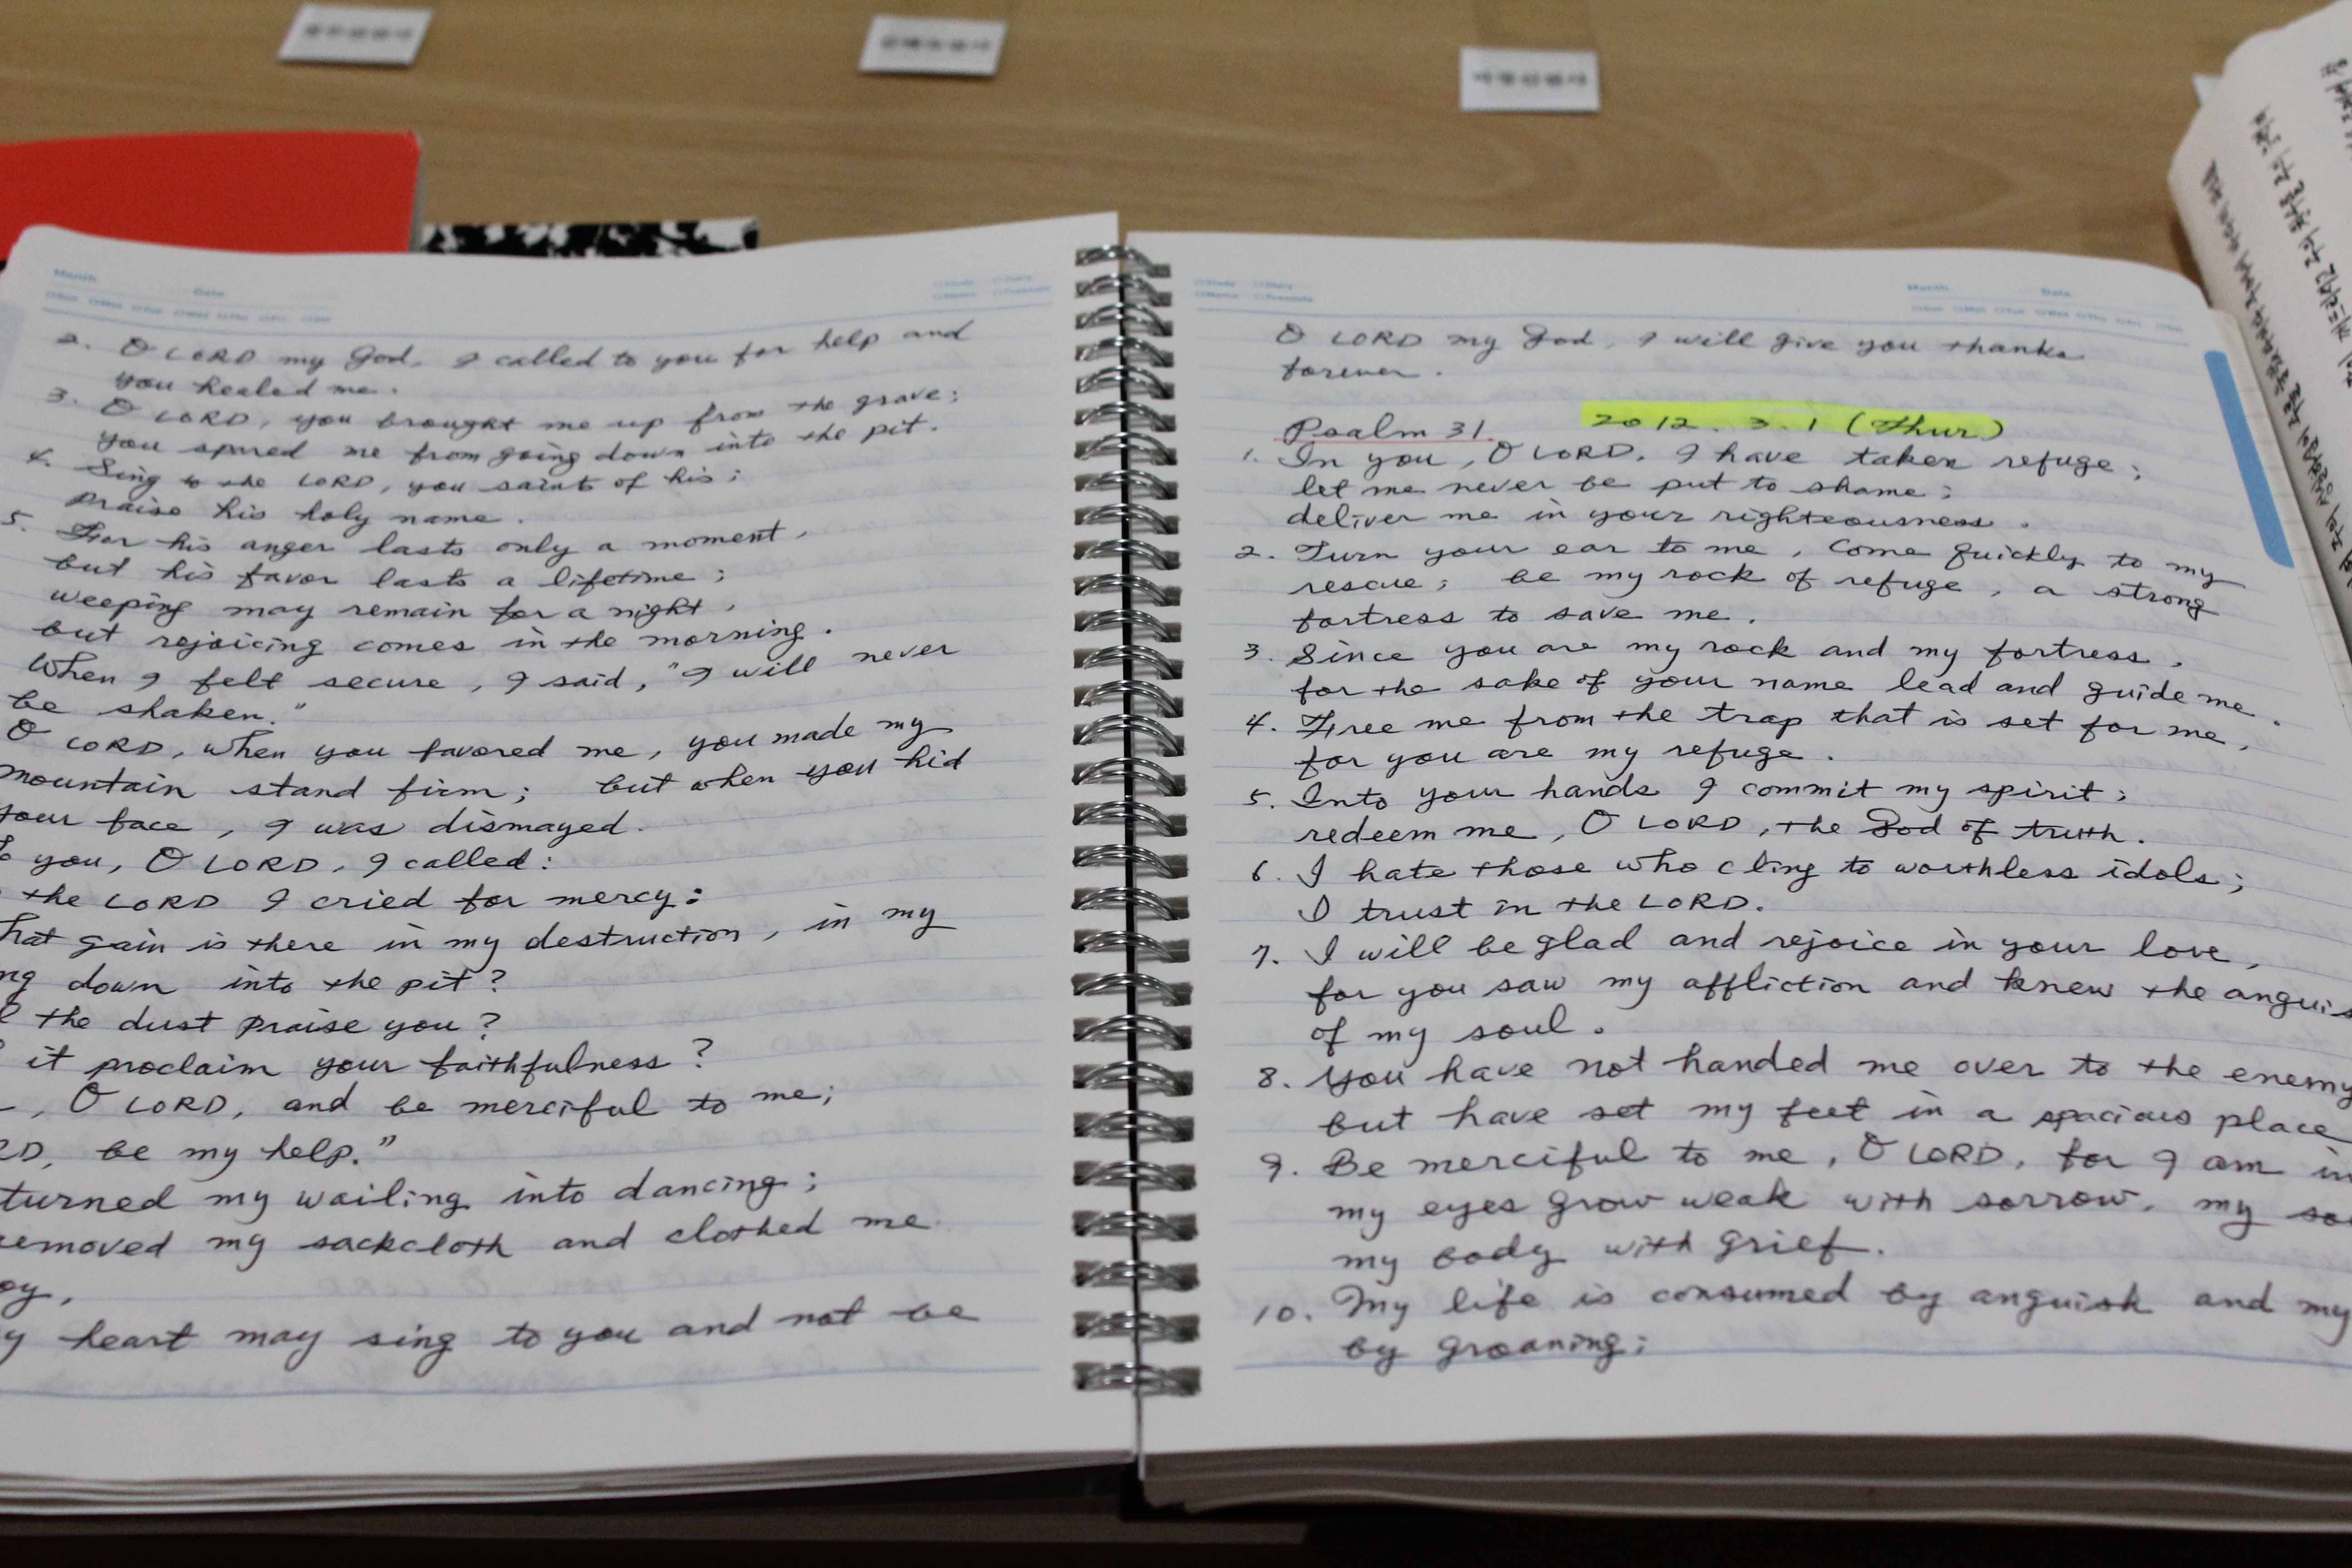 2. O LORD my God, I called to you for help and
you healed me.
3. O LORD, you brought me up from the grave;
you spared me from going down into the pit.
4. Sing to the LORD, you saints of his;
praise his holy name.
5. For his anger lasts only a moment,
but his favor lasts a lifetime;
weeping may remain for a night,
but rejoicing comes in the morning.
When I felt secure, I said, "I will never
be shaken."
O LORD, when you favored me, you made my
mountain stand firm; but when you hid
your face, I was dismayed.
you, O LORD, I called:
the LORD I cried for mercy:
hat gain is there in my destruction, in my
ng down into the pit?
the dust praise you?
it proclaim your faithfulness?
, O LORD, and be merciful to me;
RD, be my help."
turned my wailing into dancing;
removed my sackcloth and clothed me
oy,
y heart may sing to you and not be
Month Date
O LORD my God, I will give you thanks
forever.
Psalm 31. 2012. 3. 1 (Thur)
1. In you, O LORD, I have taken refuge;
let me never be put to shame;
deliver me in your righteousness.
2. Turn your ear to me, come quickly to my
rescue; be my rock of refuge, a strong
fortress to save me.
3. Since you are my rock and my fortress,
for the sake of your name lead and guide me.
4. Free me from the trap that is set for me,
for you are my refuge.
5. Into your hands I commit my spirit;
redeem me, O LORD, the God of truth.
6. I hate those who cling to worthless idols;
I trust in the LORD.
7. I will be glad and rejoice in your love,
for you saw my affliction and knew the anguis
of my soul.
8. You have not handed me over to the enemy
but have set my feet in a spacious place
9. Be merciful to me, O LORD, for I am in
my eyes grow weak with sorrow, my so
my body with grief.
10. My life is consumed by anguish and my
by groaning;